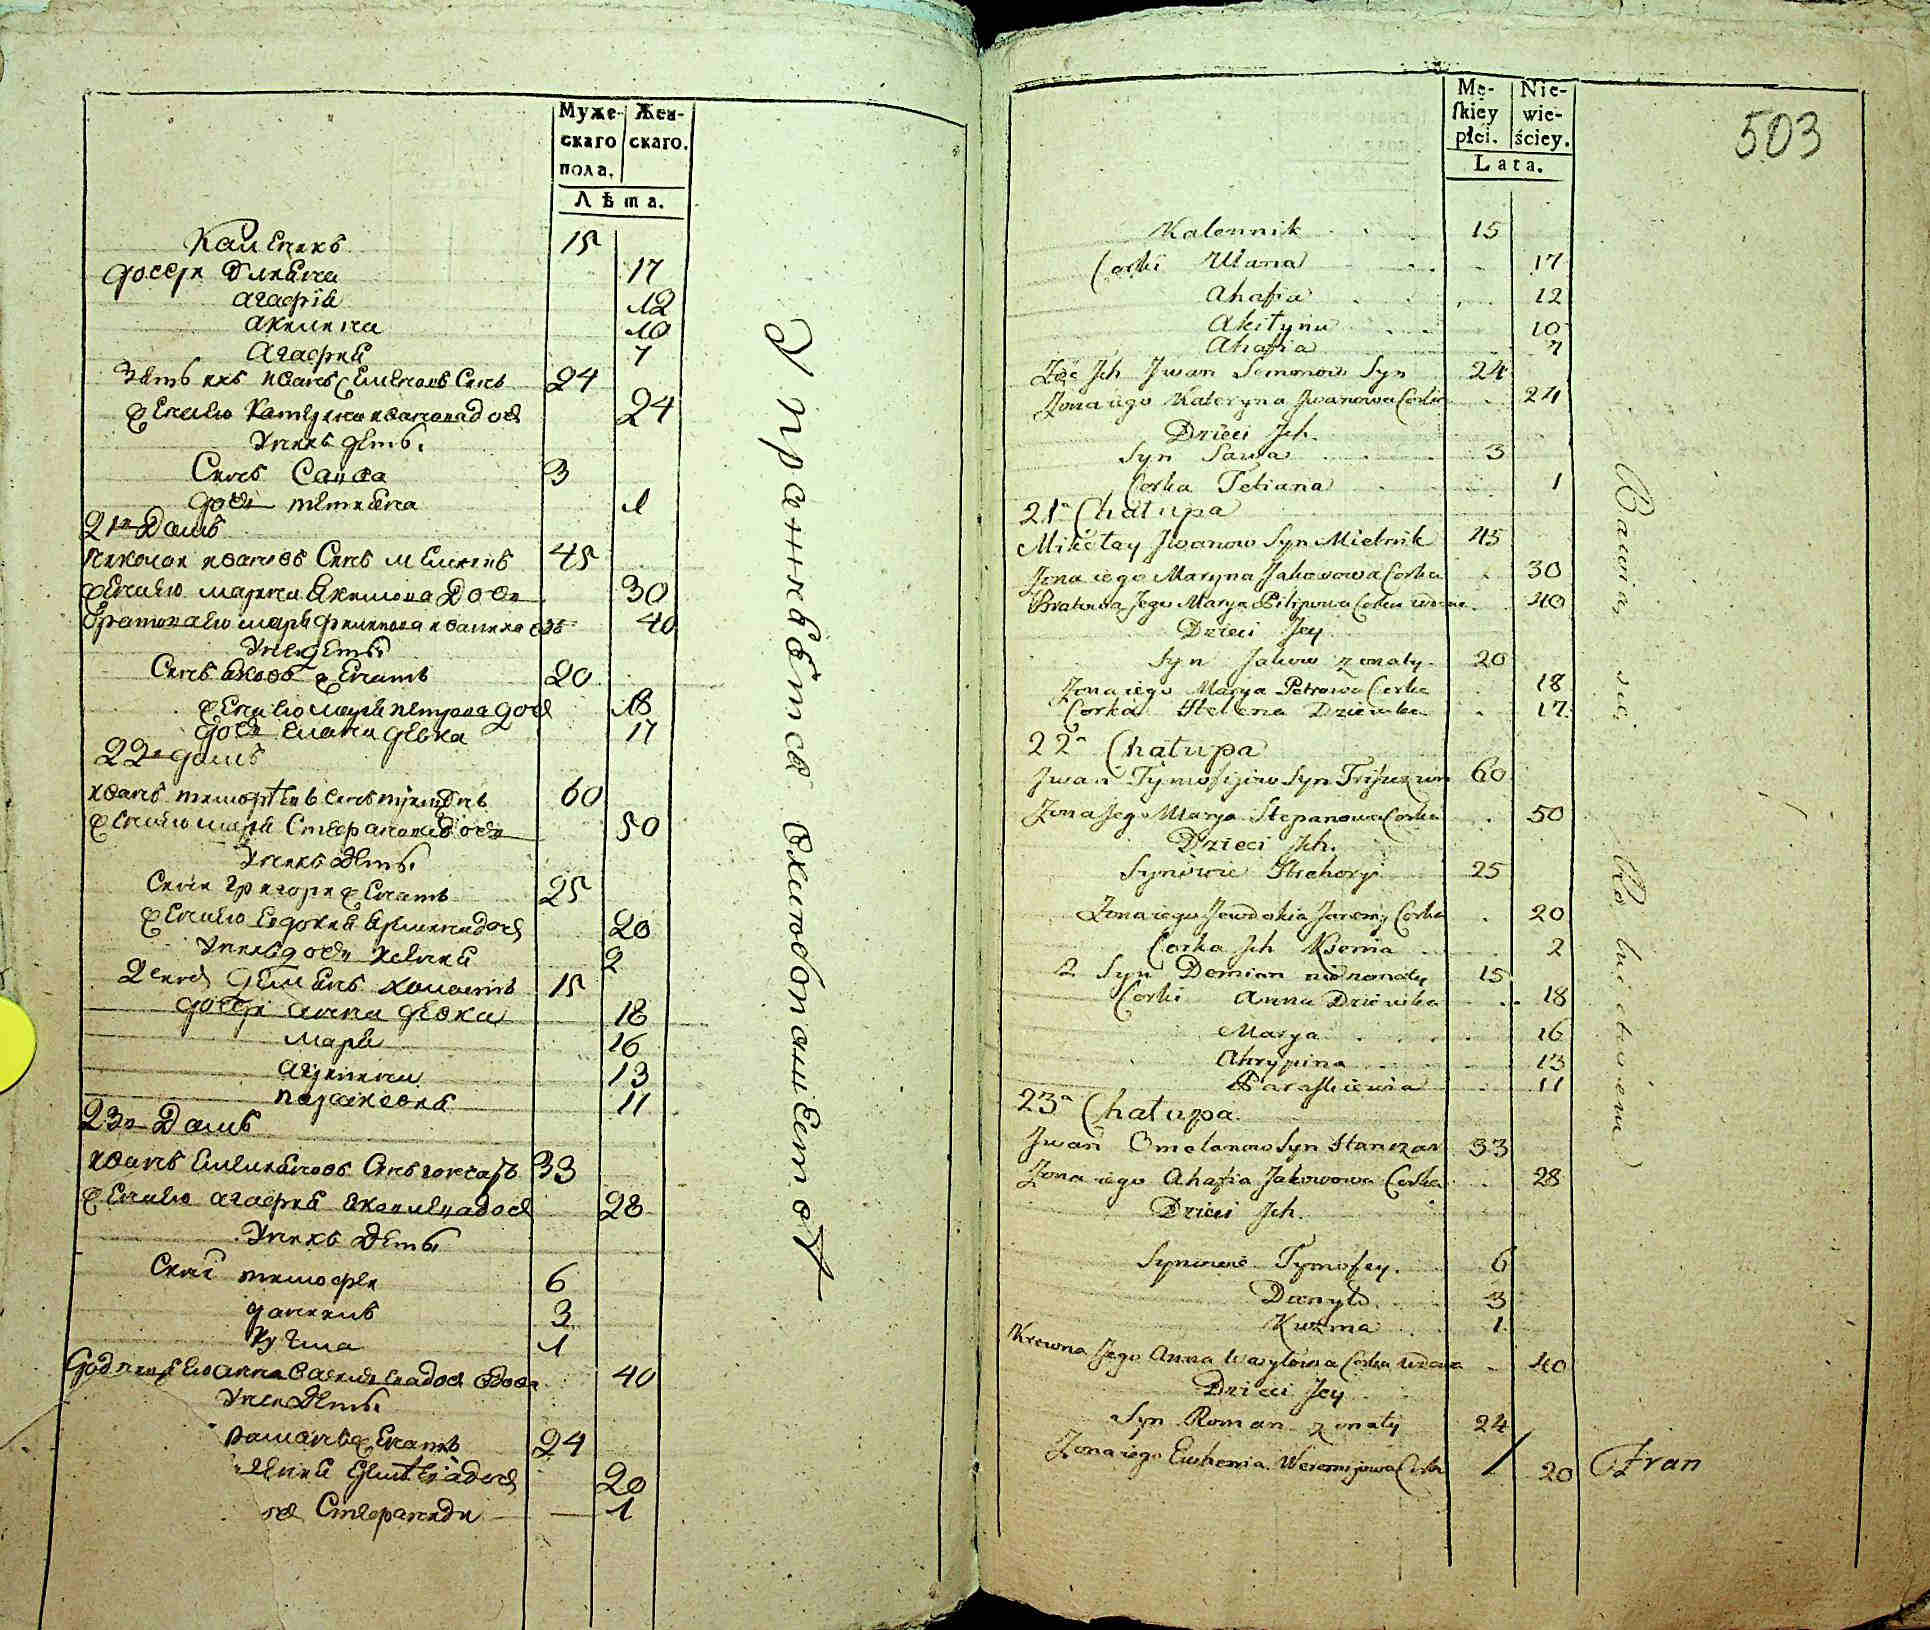 Муже-
скаго
пола.
Жен-
скаго.
Лѣта.
Калєникъ 15
дочери Улияна 17
агафія 12
акилина 10
Агафия 7
Зять ихъ иванъ Сєменовъ Синъ 24
жена єво катерина иванова доч 24
У них дети.
Синъ Савва 3
доч тетияна 1
21и Домъ
николаи ивановъ Синъ мєлникъ 45
жена єво марина Якимова Доч 30
братовая єво маря филипова 40
У неи дети
Синъ яковъ женатъ 20
жена єво маря петрова доч 18
доч єлена девка 17
22и домъ
иванъ тимофѣевъ синъ 60
жена єво маря Стефанова доч 50
У нихъ Дети
Сини григори женатъ 25
жена єво євдокия 20
У нихъ доч ксения 2
2 демянъ холостъ 15
дочери анна девка 18
маря 16
агрипина 13
парасковия 11
23и Домъ
иванъ Емельяновъ Синъ гончаръ 33
жена єво агафия яковлева доч 28
У нихъ Дети
Сини тимофеи 6
данило 3
кузма 1
анна Василєва доч вдова 40
У неи Дети
Романъ женатъ 24
20
доч Стефанида 1
Упражняются хлебопашеством
Mę-
skiey
płci.
Nie-
wie-
ściey.
Lata.
503
Kalennik 15
Corki Ulana 17
Ahafia 12
Akilyna 10
Ahafia 7
Zęć Jch Jwan Semonow Syn 24
Zona iego Kateryna Jwanowa Corka 24
Dzieci Jch.
Syn Sawa 3
Corka Tetiana 1
21a Chałupa
Mikołay Jwanow Syn Mielnik 45
Zona iego Maryna Jakimowa Corka 30
Bratowa Jego Marya Filipowa Corka wdowa 40
Dzieci Jey
Syn Jakow zonaty 20
Zona iego Marya Petrowa Corka 18
Corka Helena Dziewka 17
22a Chałupa
Jwan Tymofijow Syn 60
Zona Jego Marya Stepanowa Corka 50
Dzieci Jch.
Synowie Hrehory 25
Zona iego Jewdokia Jaremy Corka 20
Corka Jch Ksenia 2
2 Syn Demian nieżonaty 15
Corki Anna Dziewka 18
Marya 16
Ahrypina 13
Paraskiewia 11
23a Chałupa.
Jwan Omelanow Syn Hanczar 33
Zona iego Ahafia Jakowowa Corka 28
Dzieci Jch.
Synowie Tymofey. 6
Danyło 3
Kuzma 1
Krewna Jego Anna Wasylowa Corka wdowa 40
Dzieci Jey
Syn Roman zonaty 24
Zona iego Euhenia Weremijowa Corka 20
Bawią się
Fran